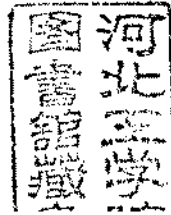 河北医学
图书馆藏